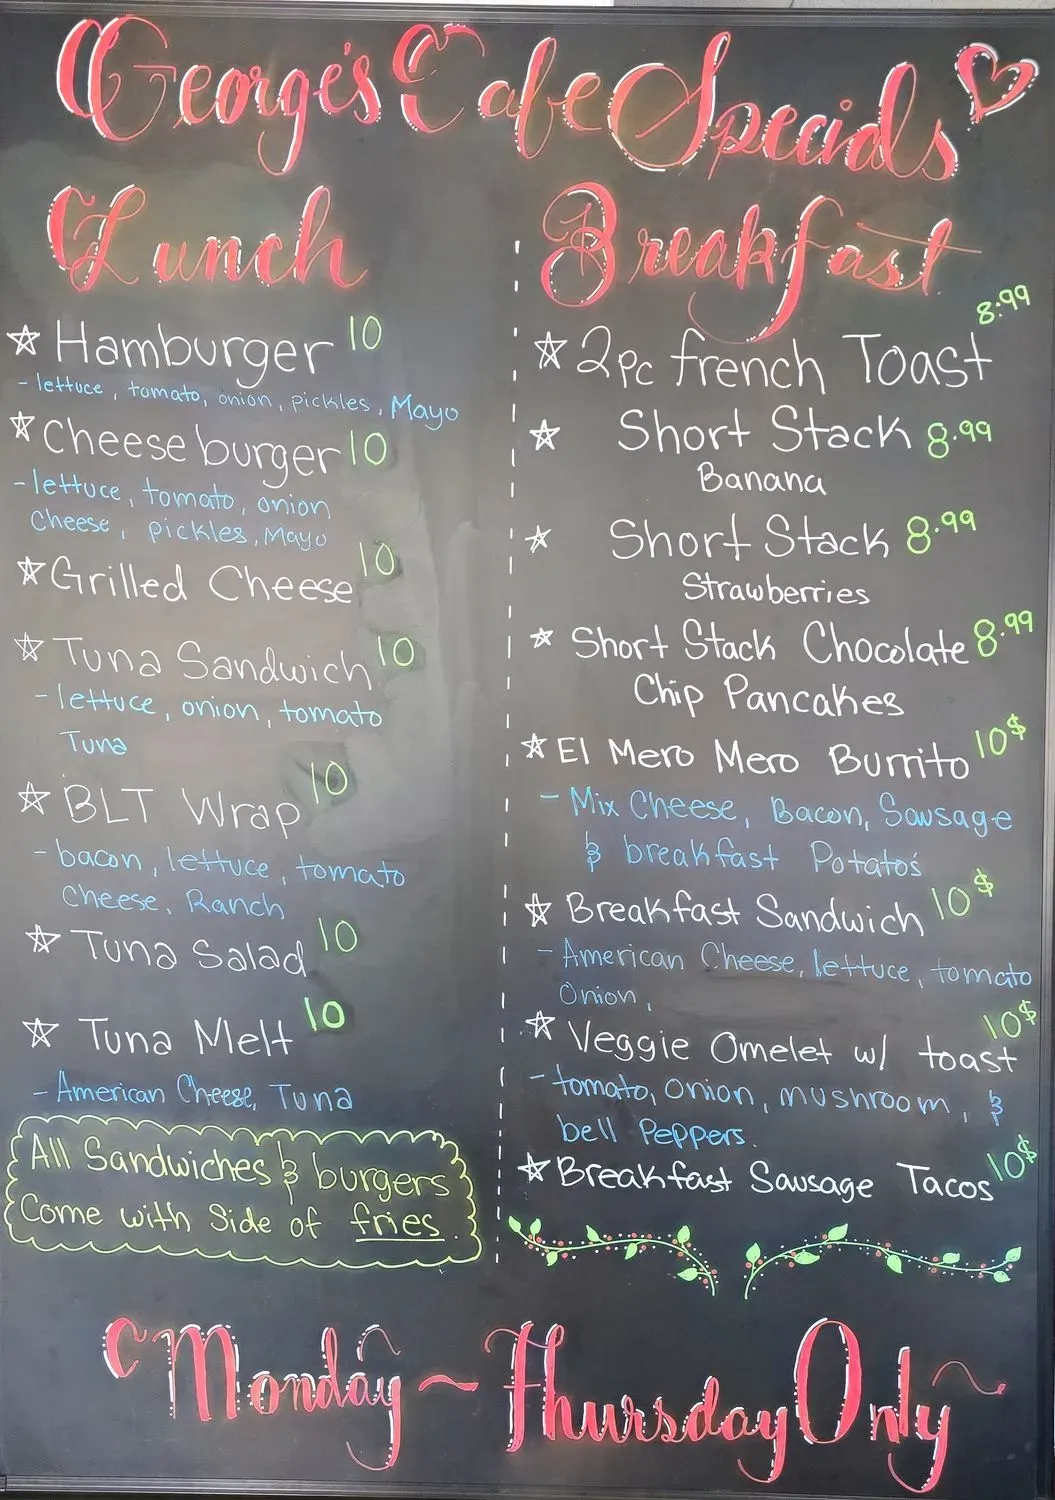 George's Cafe Specials
Lunch
Hamburger 10
- lettuce, tomato, onion, pickles, Mayo
Cheese burger 10
- lettuce, tomato, onion
Cheese, pickles, Mayo
Grilled Cheese 10
Tuna Sandwich 10
- lettuce, onion, tomato
Tuna
BLT Wrap 10
- bacon, lettuce, tomato
Cheese, Ranch
Tuna Salad 10
Tuna Melt 10
- American Cheese, Tuna
All Sandwiches & burgers
Come with Side of fries.
Breakfast
2pc french Toast 8.99
Short Stack 8.99
Banana
Short Stack 8.99
Strawberries
Short Stack Chocolate 8.99
Chip Pancakes
El Mero Mero Burrito 10$
- Mix Cheese, Bacon, Sausage
& breakfast Potato's
Breakfast Sandwich 10$
- American Cheese, lettuce, tomato
Onion,
Veggie Omelet w/ toast 10$
- tomato, onion, mushroom, &
bell Peppers.
Breakfast Sausage Tacos 10$
Monday ~ Thursday Only